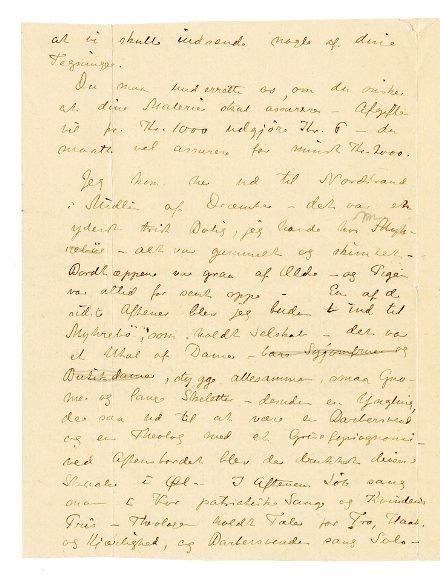 at vi skulle indsende nogle af dine
Tegninger.
Du maa underrette os, om du ønsker
at dine Malerier skal assureres – Afgiften
vil pr. Kr. 1000 udgjøre Kr. 6 – du
maatte vel assurere for mindst Kr. 2000.
Jeg kom her ud til Nordstrand
i Midten af December – det var et
yderst trist Bolig, jeg havde hos
– alt var gammelt og skimlet –
Bordtæppene var graa af Ælde – og Pigen
var altid for sent oppe – En af de
sidste Aftener blev jeg buden ind til
som holdt Selskab – det var
et Utal af Damer – og
stygge allesammen, smaa Gno-
mer og lange Skeletter – desuden en Yngling,
der saa ud til at være en Barbersvend
og en Theolog med et
ved Aftenbordet blev der drukket
Skaaler i Øl – I Aftenens Løb sang
man i Kor patriotiske Sange og Kvindens
Pris – Theologen holdt Tale for Tro, Haab
og Kjærlighed, og Barbersvenden sang Solo –